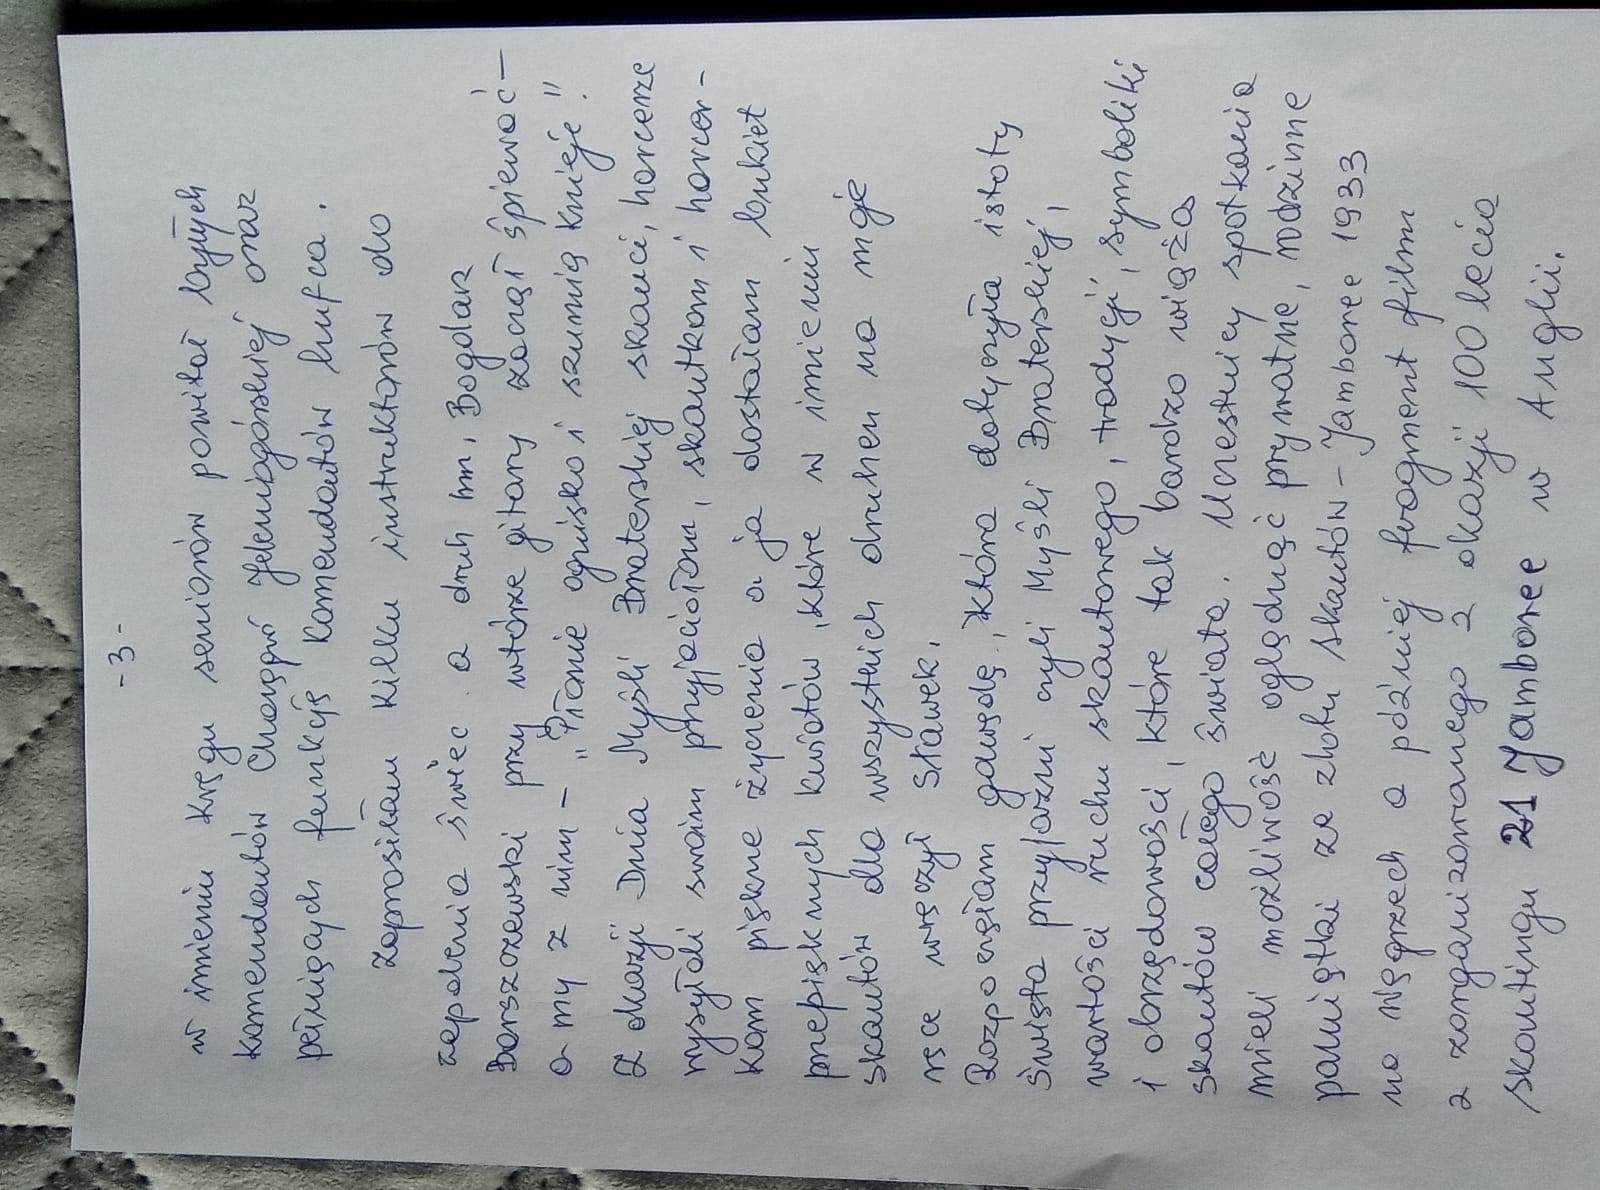 -3-
w imieniu Kręgu seniorów powitał byłych
Komendantów Chorągwi Jeleniogórskiej oraz
pełniących funkcję Komendantów hufca.
Zaprosiłam kilku instruktorów do
zapalenia świec. a druh hm. Bogdan
Barszczewski przy wtórze gitary zaczął śpiewać –
a my z nim – „Płonie ognisko i szumią knieje".
Z okazji Dnia Myśli Braterskiej skauci, harcerze
wysyłali swoim przyjaciołom, skautkom i harcer-
kom piękne życzenia a ja dostałam bukiet
przepięknych kwiatów, które w imieniu
skautów dla wszystkich druhen na moje
ręce wręczył Sławek.
Rozpoczęłam gawędę, która dotyczyła istoty
święta przyjaźni czyli Myśli Braterskiej,
wartości ruchu skautowego, tradycji, symboliki
i obrzędowości, które tak bardzo wiążą
skautów całego świata. Uczestnicy spotkania
mieli możliwość oglądnąć prywatne, rodzinne
pamiątki ze zlotu skautów – Jamboree 1933
na węgrzech a później fragment filmu
z zorganizowanego z okazji 100 lecia
skautingu 21 Jamboree w Anglii.